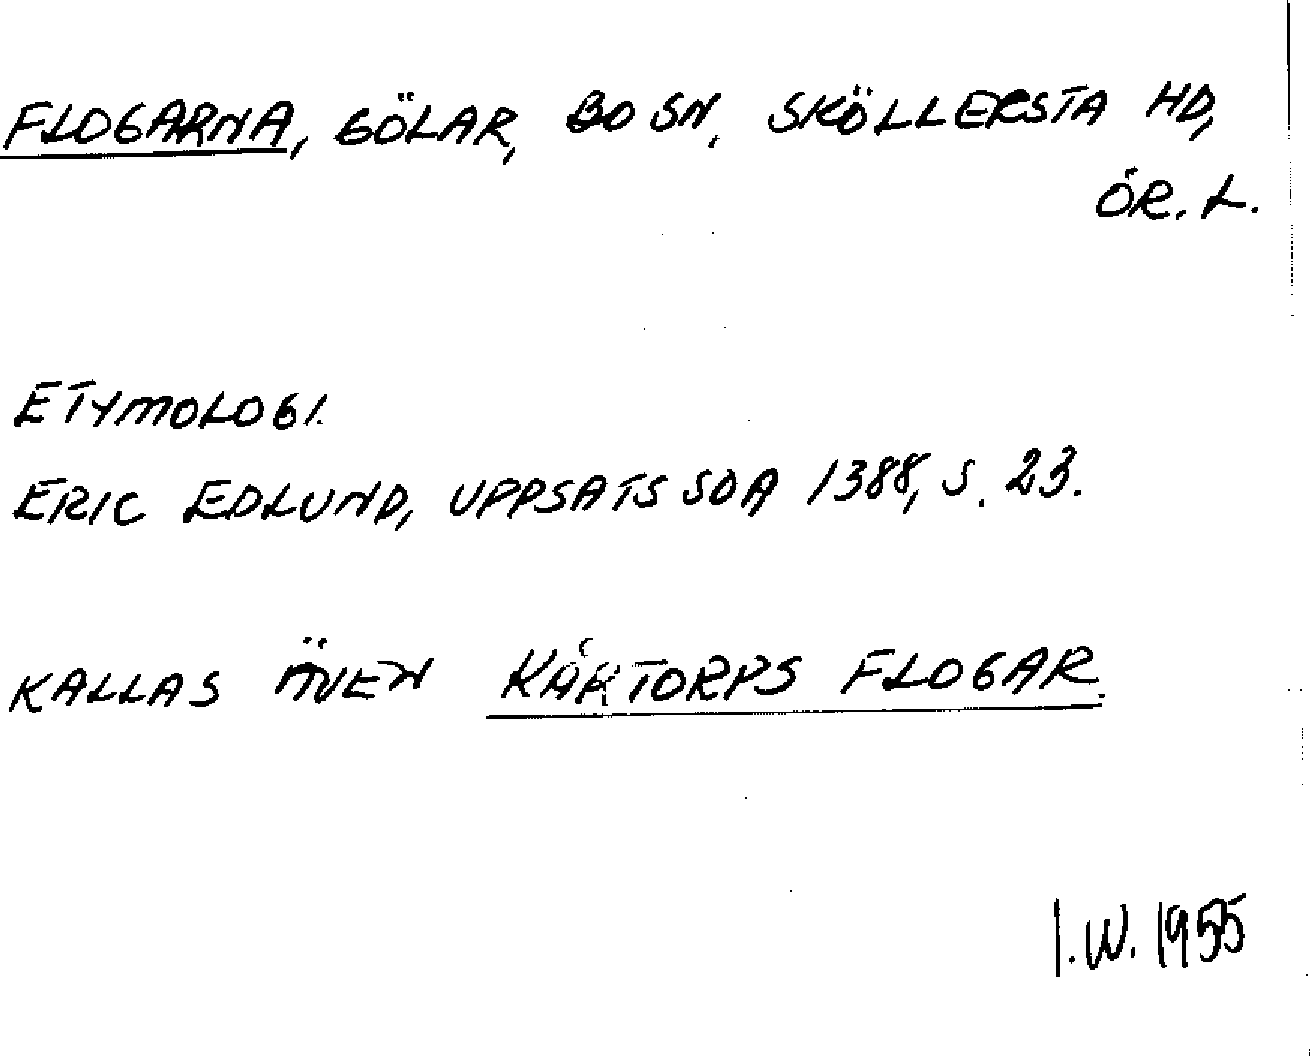 FLOGARNA, GÖLAR, BO SN, SKÖLLERSTA HD,
ÖR. L.
ETYMOLOGI.
ERIC EDLUND, UPPSATS SOA 1388, S. 23.
KALLAS ÄVEN KÅKTORPS FLOGAR.
I.W. 1955